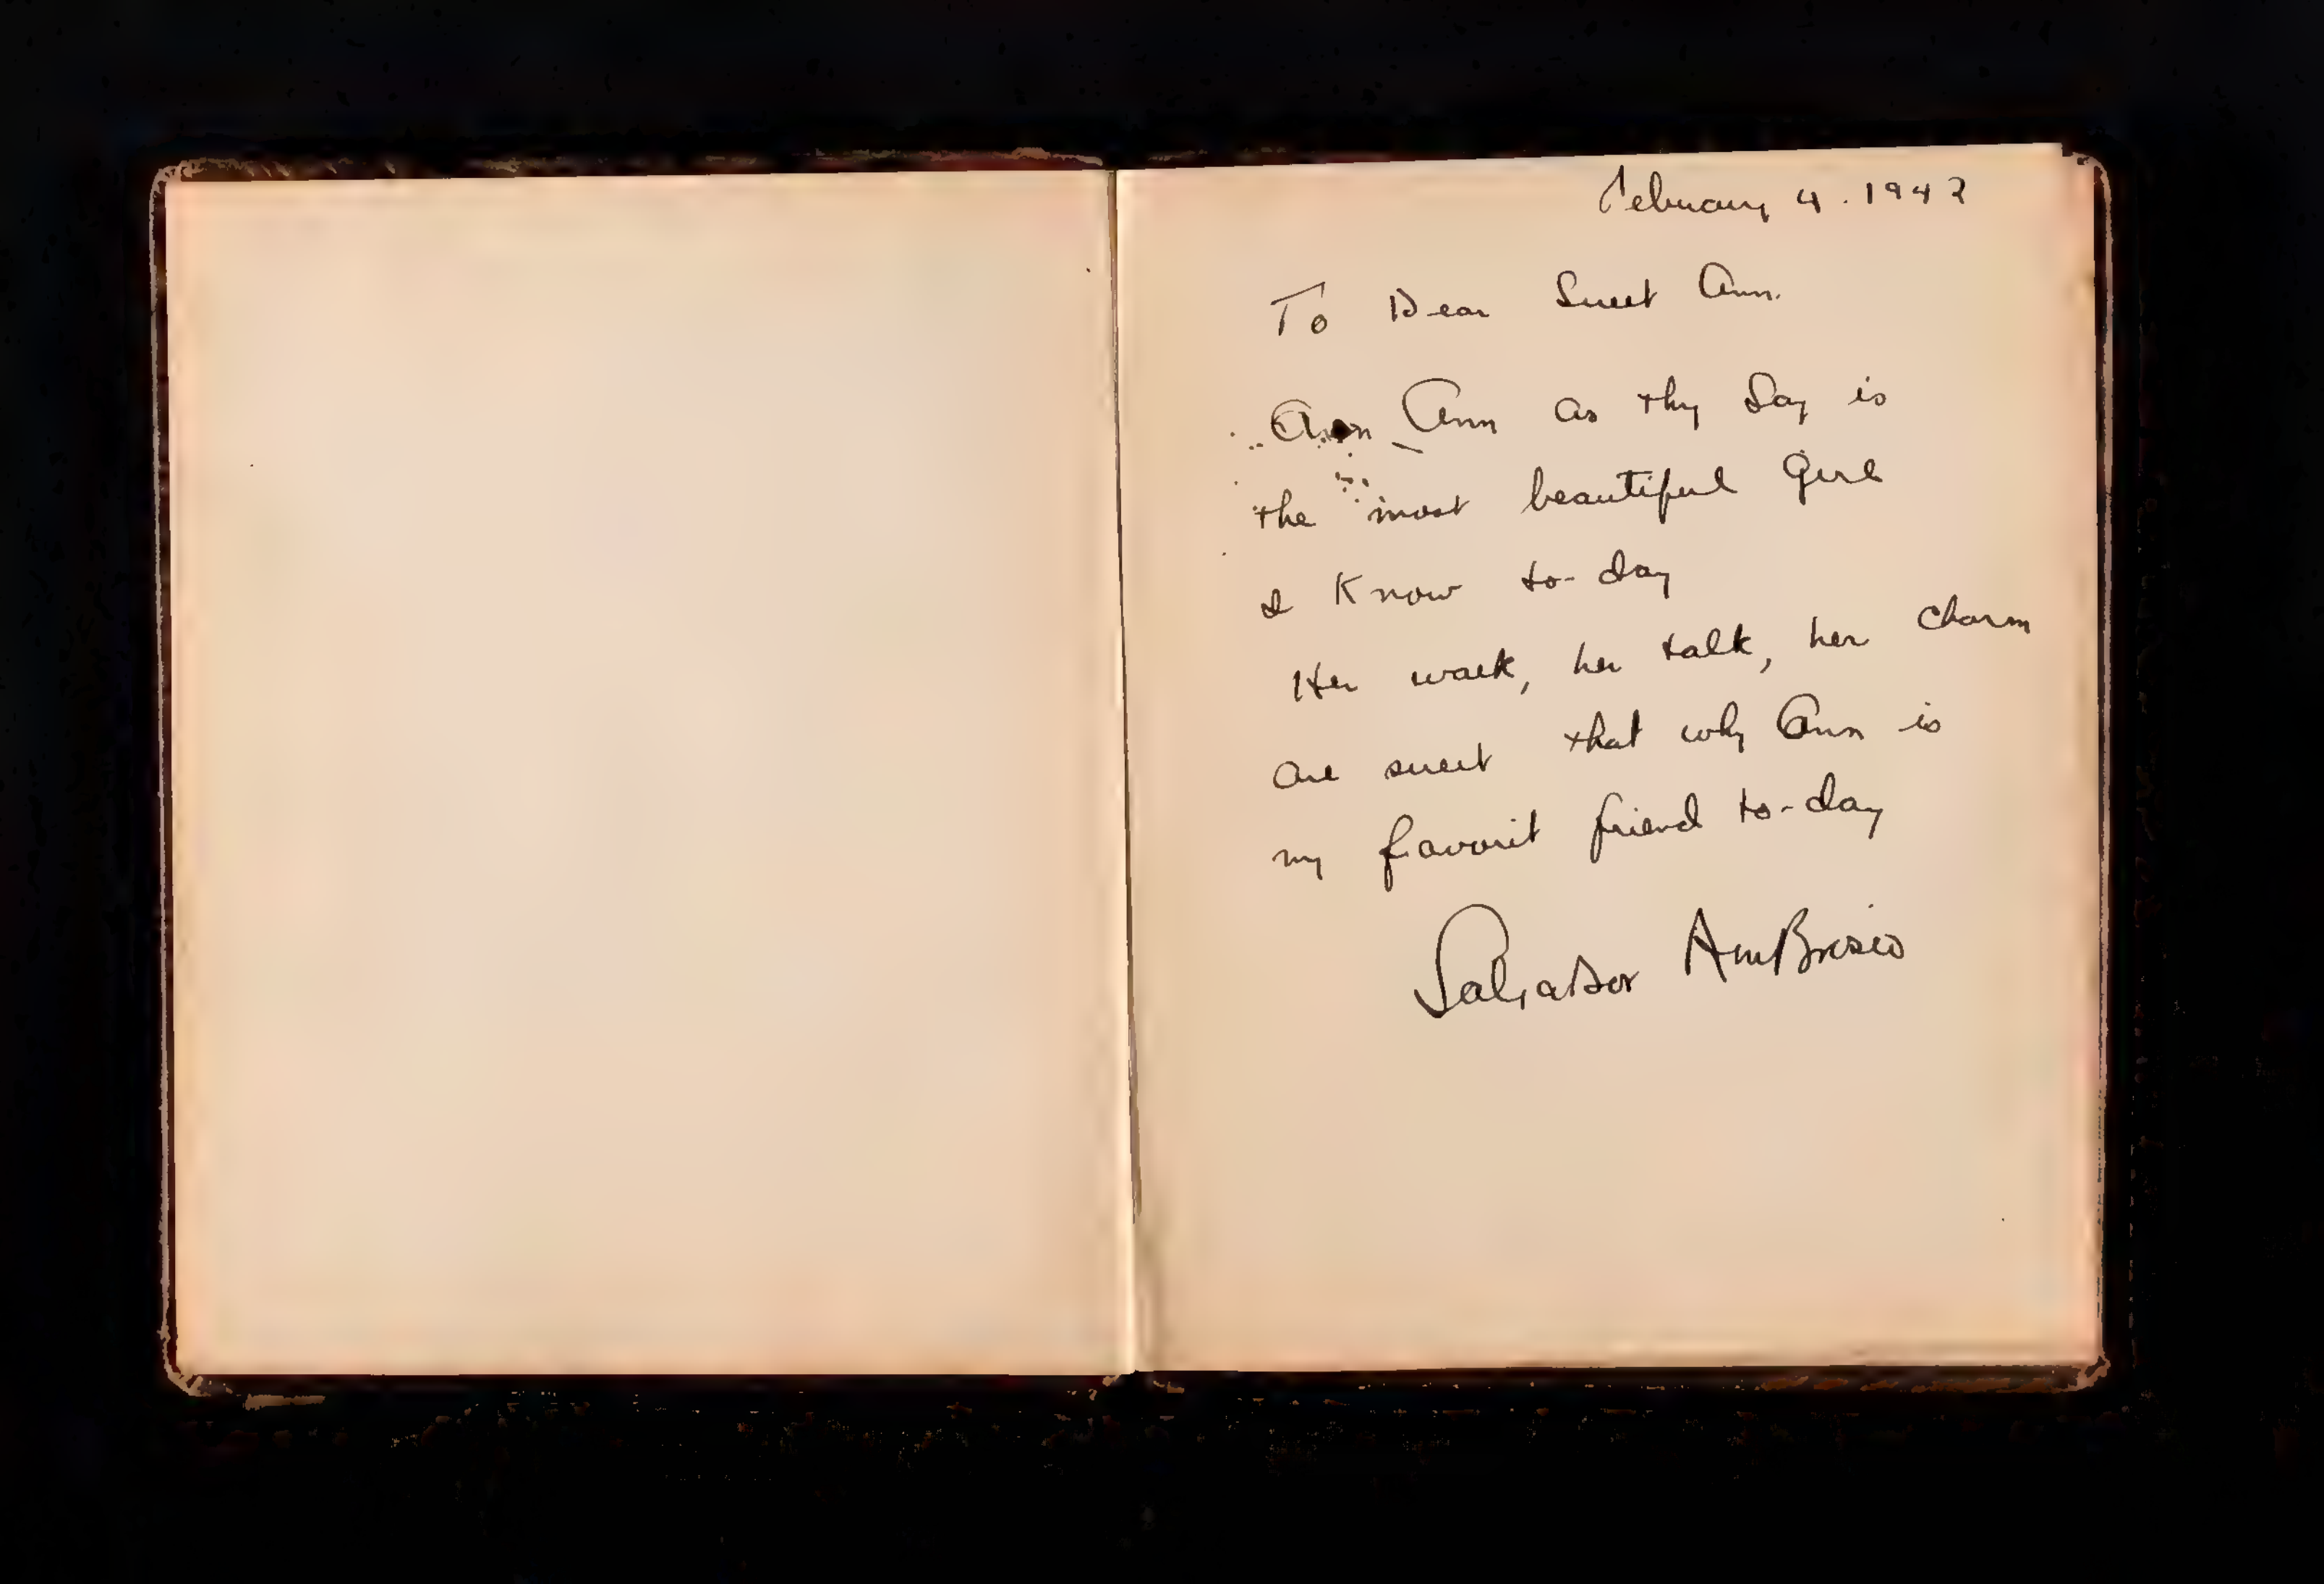 February 4. 1942
To Dear Sweet Ann.
Ann Ann as thy Day is
the most beautiful Girl
I Know to-day
Her walk, her talk, her charm
are sweet that why Ann is
my favorit friend to-day
Salvador AmBrosio